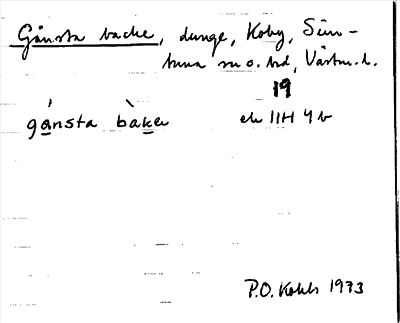 Gånsta backe, dunge, Koby, Sim-
tuna sn o. hd, Västm. l.
19
gånsta bakɐ ek 11H 4b
P.O. Kohls 1973